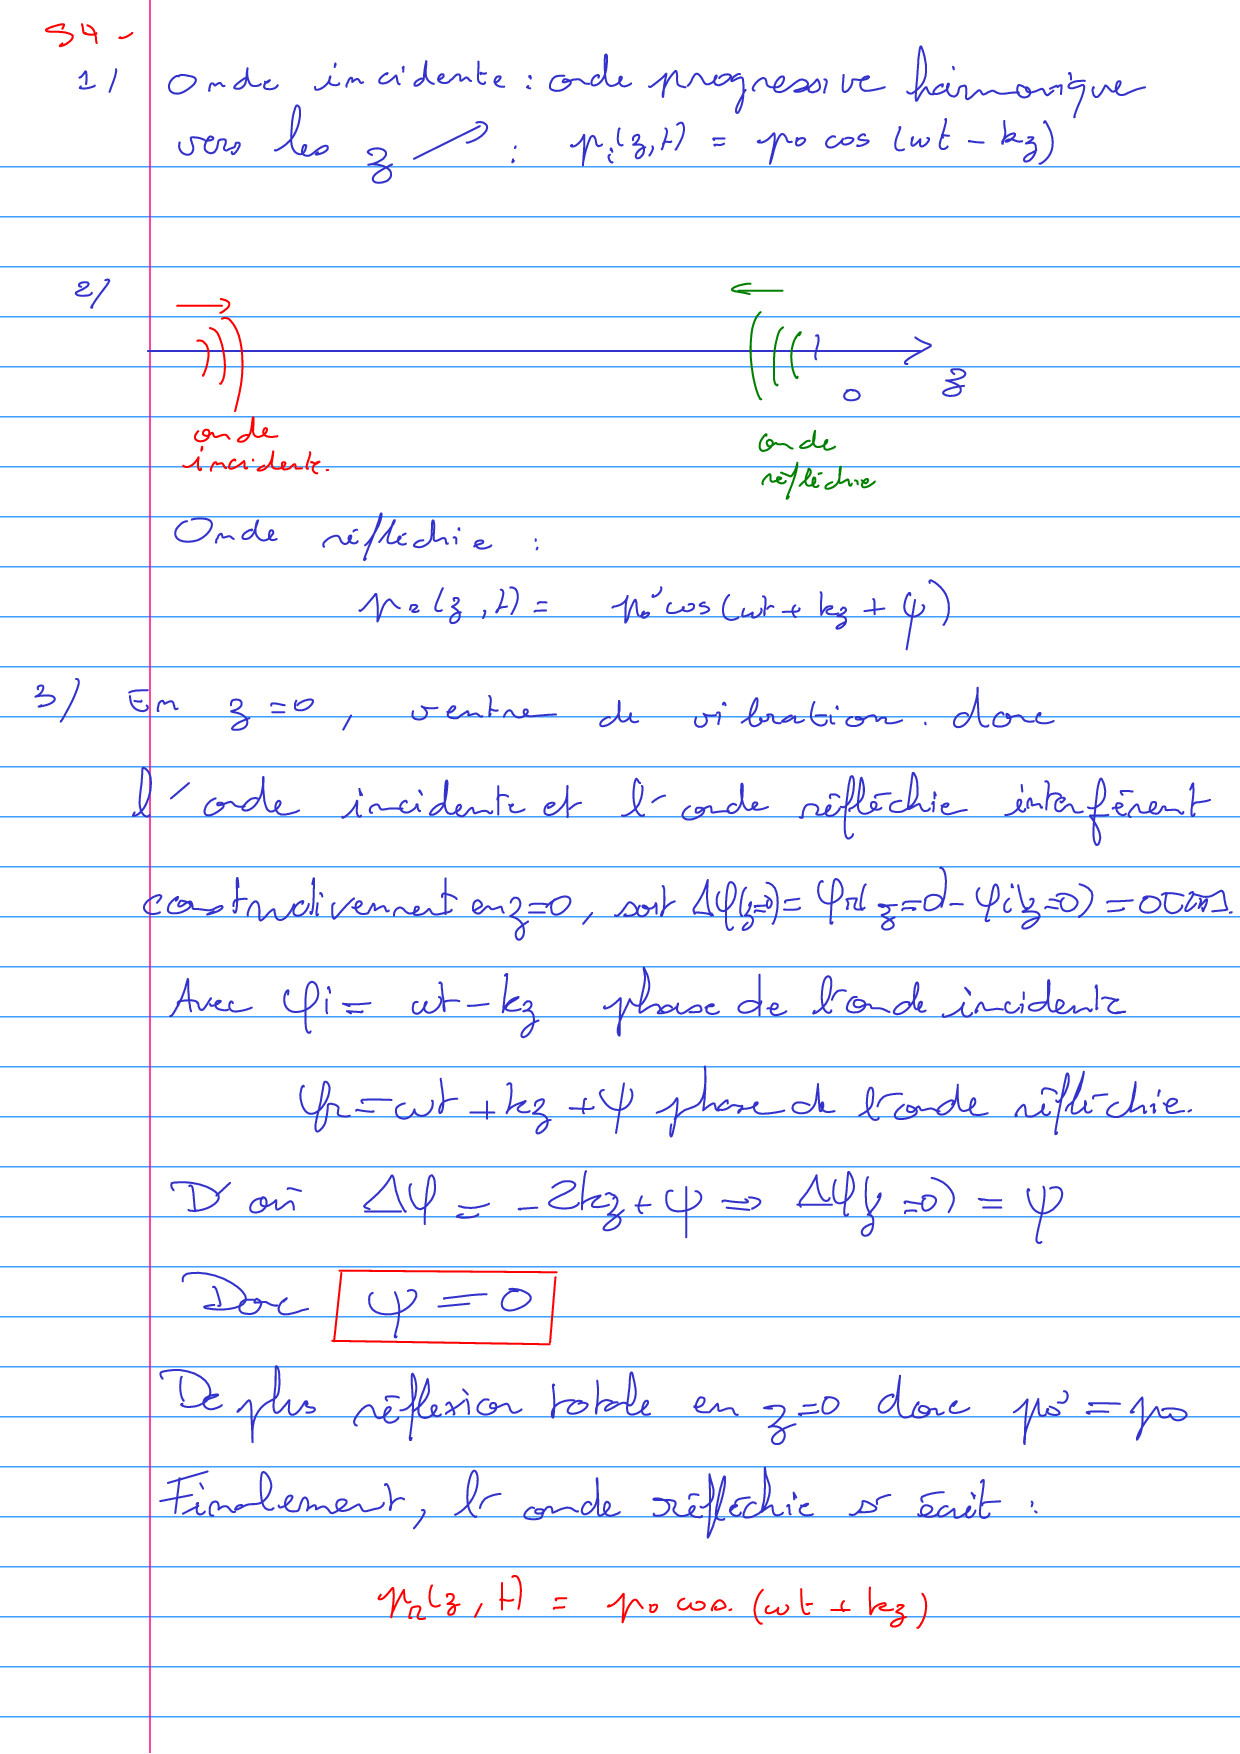 S4 -
1/ Onde incidente : onde progressive harmonique
vers les z ↗ : pi(z,t) = p0 cos (ωt - kz)
2/
0
z
onde
incidente.
onde
réfléchie
Onde réfléchie :
pr(z,t) = p0' cos(ωt + kz + φ)
3/ En z=0, ventre de vibration. donc
l'onde incidente et l'onde réfléchie interfèrent
constructivement en z=0, soit Δφ(z=0) = φr(z=0) - φi(z=0) = 0[2π].
Avec φi = ωt - kz phase de l'onde incidente
φr = ωt + kz + φ phase de l'onde réfléchie.
D'où Δφ = -2kz + φ ⇒ Δφ(z=0) = φ
Donc φ = 0
De plus réflexion totale en z=0 donc p0' = p0
Finalement, l'onde réfléchie s'écrit :
pr(z,t) = p0 cos. (ωt + kz)